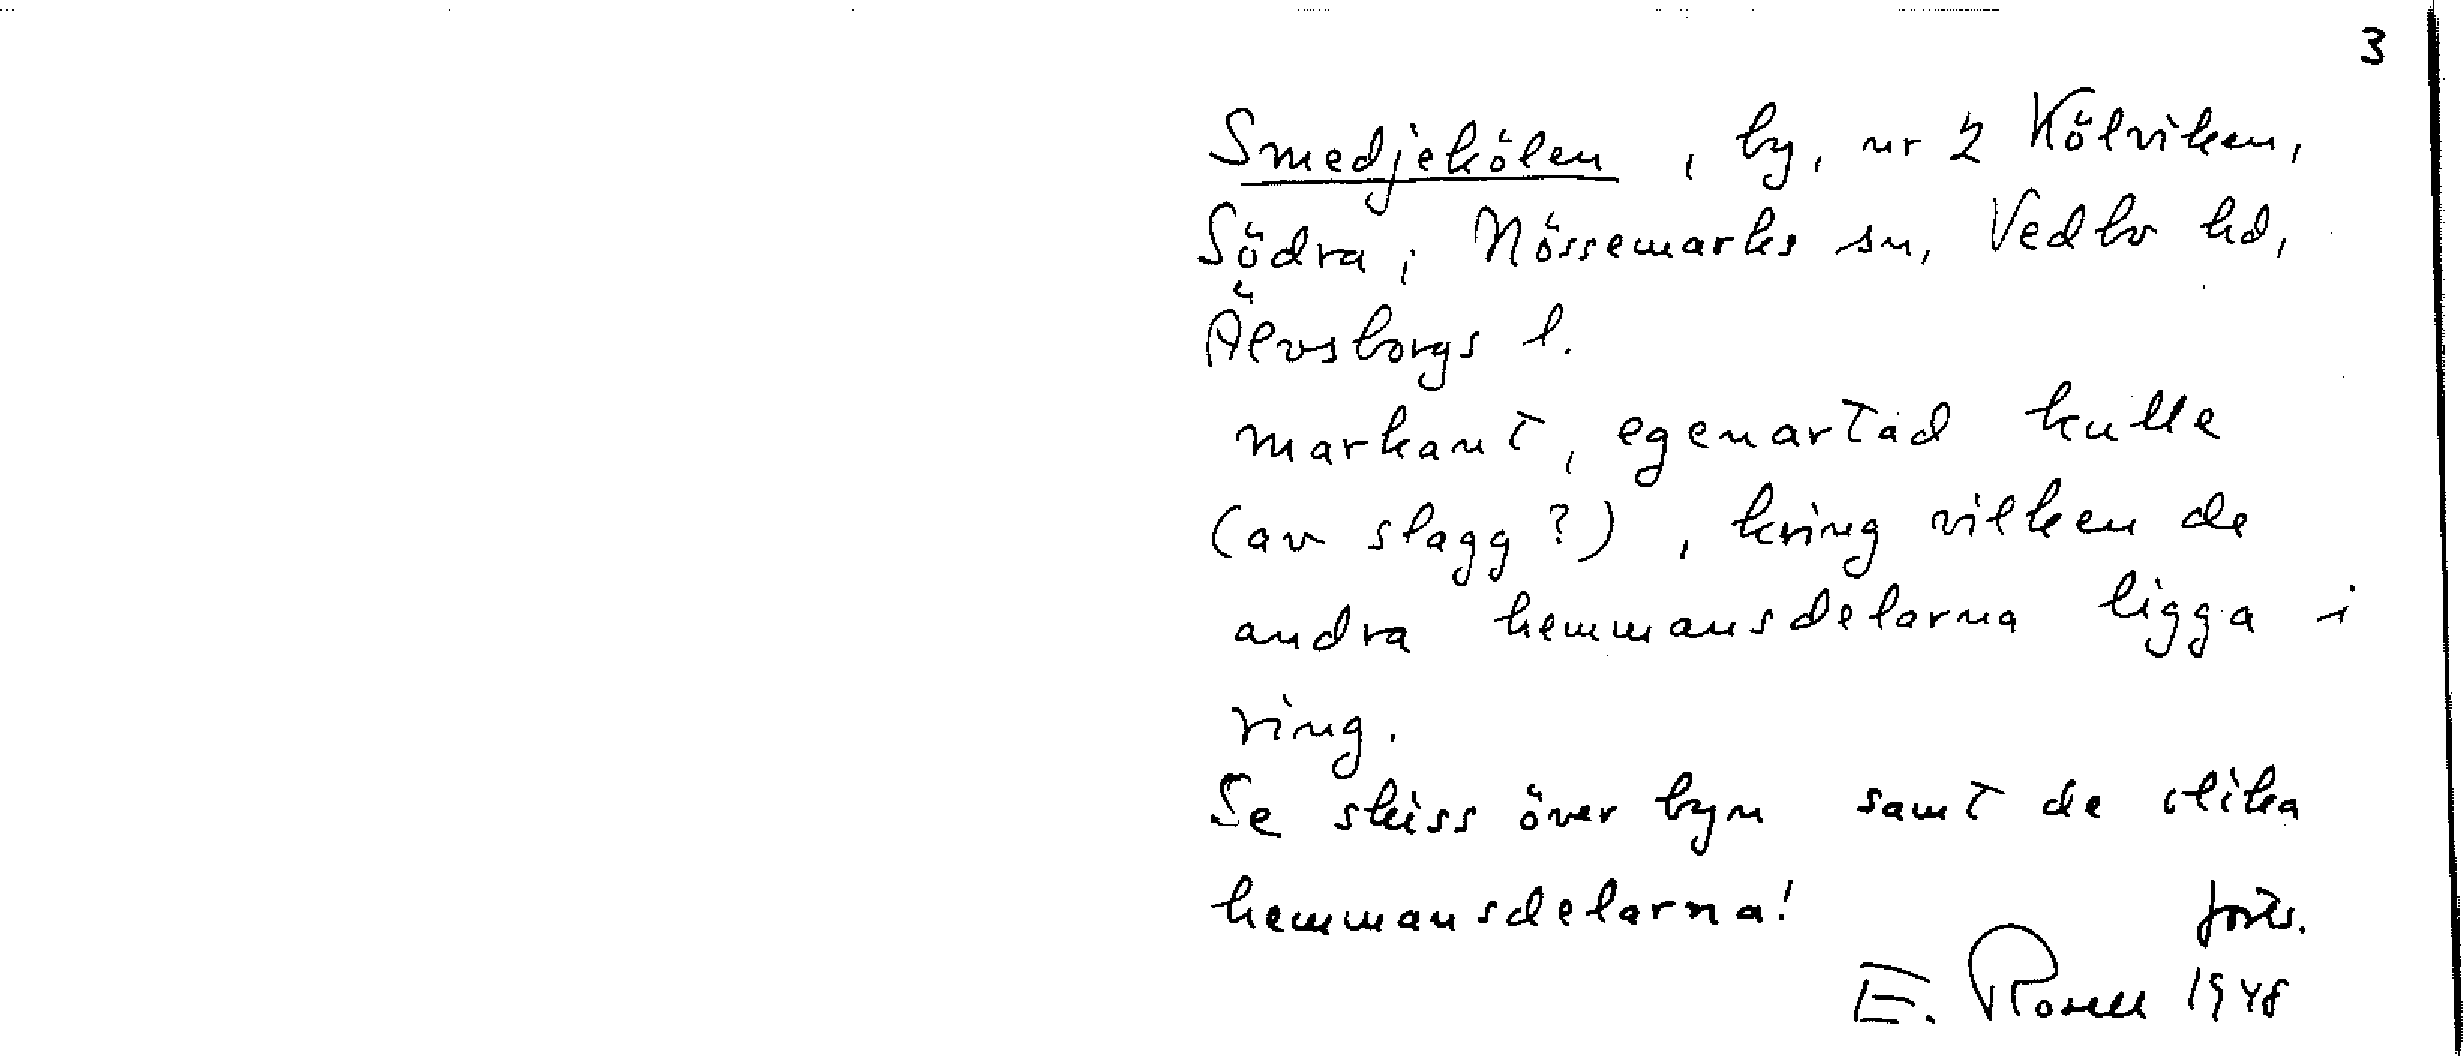 3
Smedjekölen, by, nr 2 Kölviken,
Södra, Nössemarks sn, Vedbo hd,
Älvsborgs l.
markant, egenartad kulle
(av slagg?), kring vilken de
andra hemmansdelarna ligga i
ring.
Se skiss över byn samt de olika
hemmansdelarna!
forts.
E. Rosell 1948